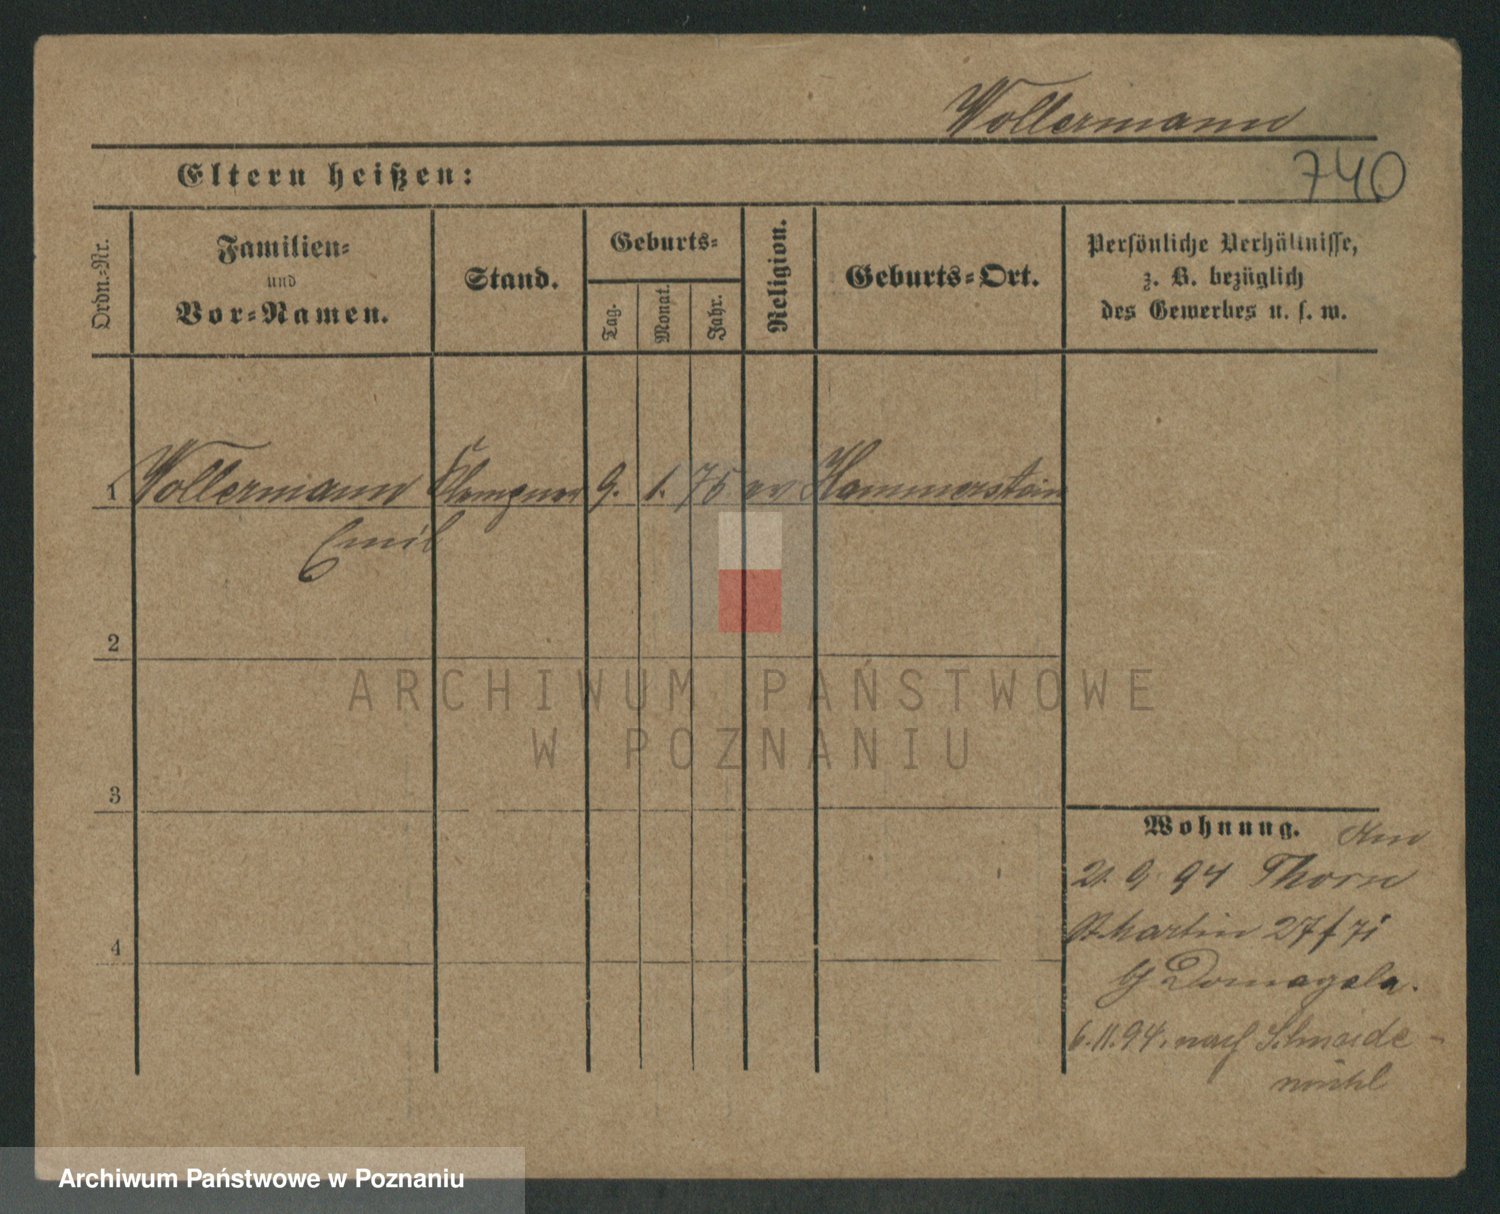 Wollermann
740
Eltern heißen:
Ordn.-Nr.
Familien-
und
Vor-Namen.
Stand.
Geburts-
Tag.
Monat.
Jahr.
Religion.
Geburts-Ort.
Persönliche Verhältnisse,
z. B. bezüglich
des Gewerbes u. s. w.
1 Wollermann Klempner 9. 1. 75 ev Hammerstein
Emil
2
3
4
Wohnung.
21. 9. 94 Thorn
St Martin 27
Domagala.
6.11.94. nach Schneide-
mühl
ARCHIWUM PAŃSTWOWE
W POZNANIU
Archiwum Państwowe w Poznaniu